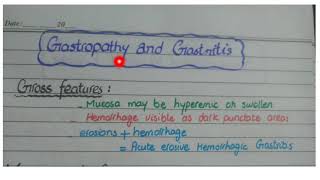 Date: 20
Gastropathy and Gastritis
Gross features:
- Mucosa may be hyperemic or swollen
- Hemorrhage visible as dark punctate areas
- erosions + hemorrhage
= Acute erosive Hemorrhagic Gastritis